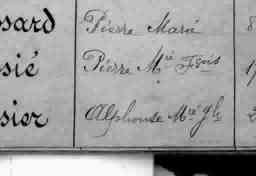 ssard Pierre Marie 8
sié Pierre Mie Fçois 1
sier Alphonse Mie Jh 2